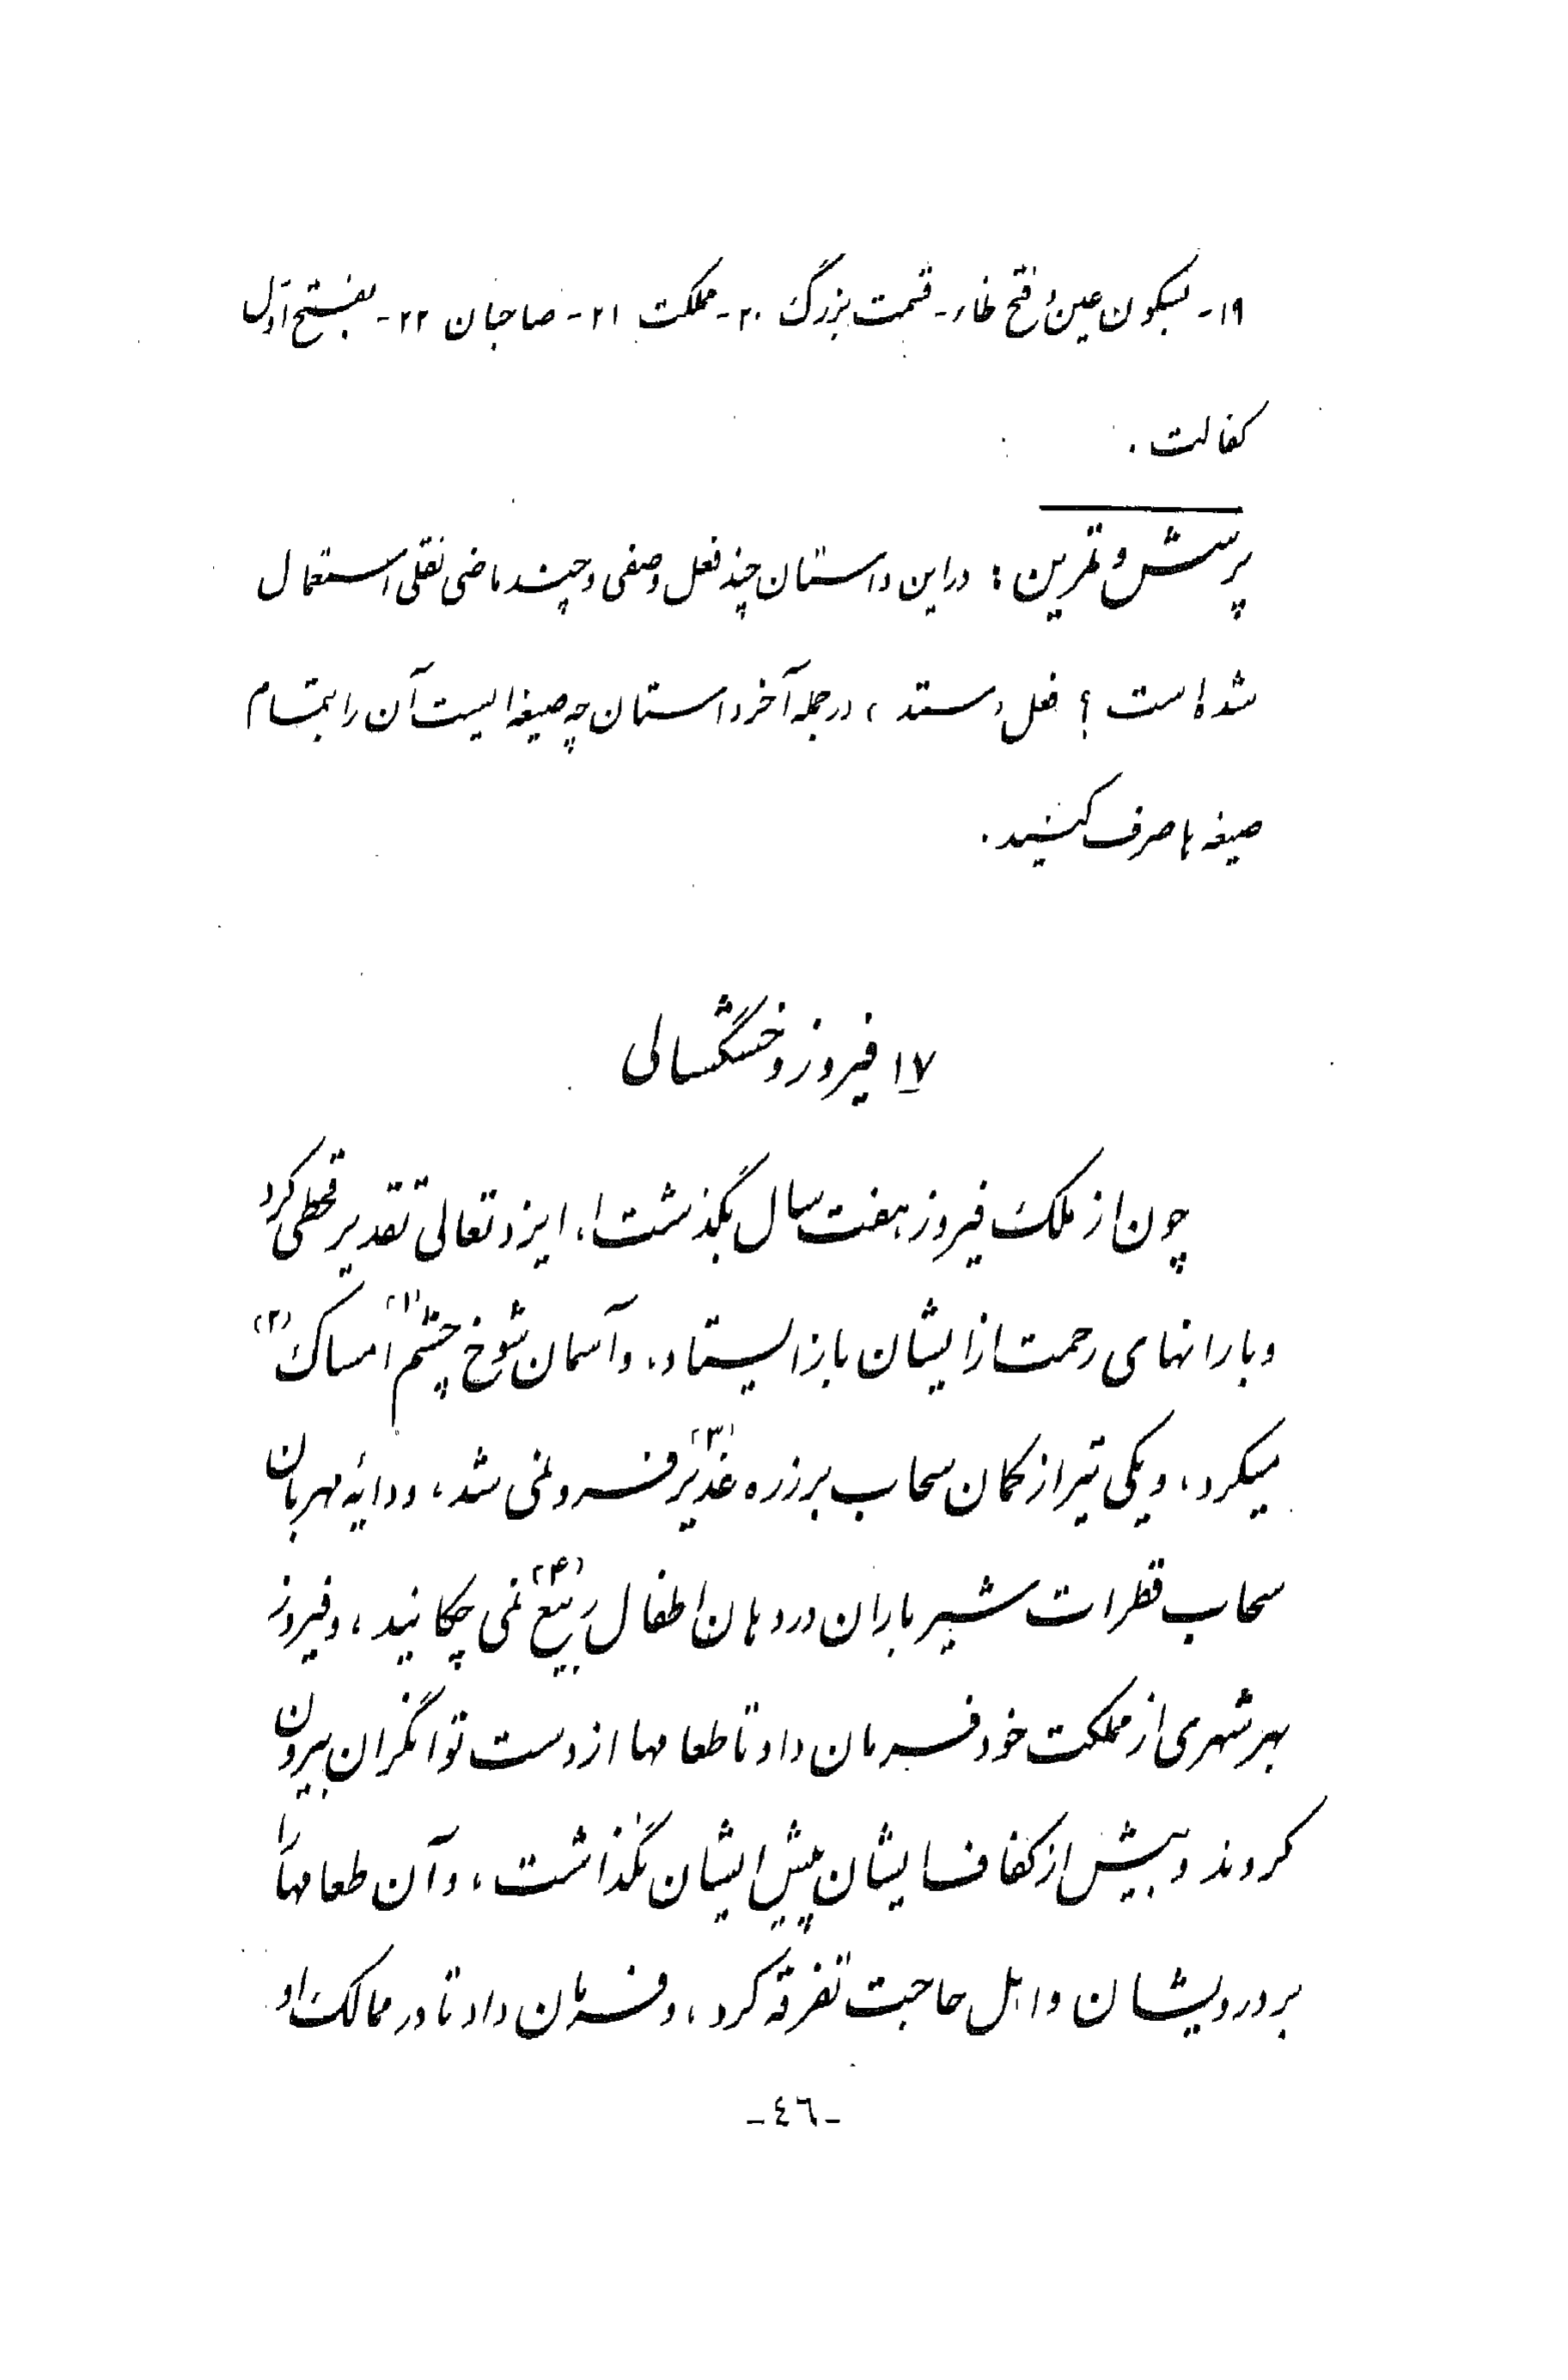 ۱۹- بسکون عین و فتح ظاء - قسمت بزرگ ۲۰- مملکت ۲۱- صاحبان ۲۲- بفتح اول
کفالت .
پرسش و تمرین : در این داستان چند فعل وصفی و چند ماضی نقلی استعمال
شده است ؟ فعل ستد ، در جمله آخر داستان چه صیغه ایست آن را بتمام
صیغه ها صرف کنید .
۱۷ فیروز و خشگسالی
چون از ملک فیروز هفت سال بگذشت ، ایزد تعالی تقدیر قحطی کرد
و بارانهای رحمت از ایشان باز ایستاد . و آسمان شوخ چشم (۱) امساک (۲)
میکرد ، و یکی تیر از کمان سحاب بر زره غدیر (۳) فرو نمی شد ، و دایهٔ مهربان
سحاب قطرات شیر باران در دهان اطفال ربیع (۴) نمی چکانید ، و فیروز
بهر شهری از مملکت خود فرمان داد تا طعامها از دست توانگران بیرون
کردند و بیش از کفاف ایشان پیش ایشان نگذاشت ، و آن طعامها را
بر درویشان و اهل حاجت تفرقه کرد ، و فرمان داد تا در ممالک او
-٤٦-